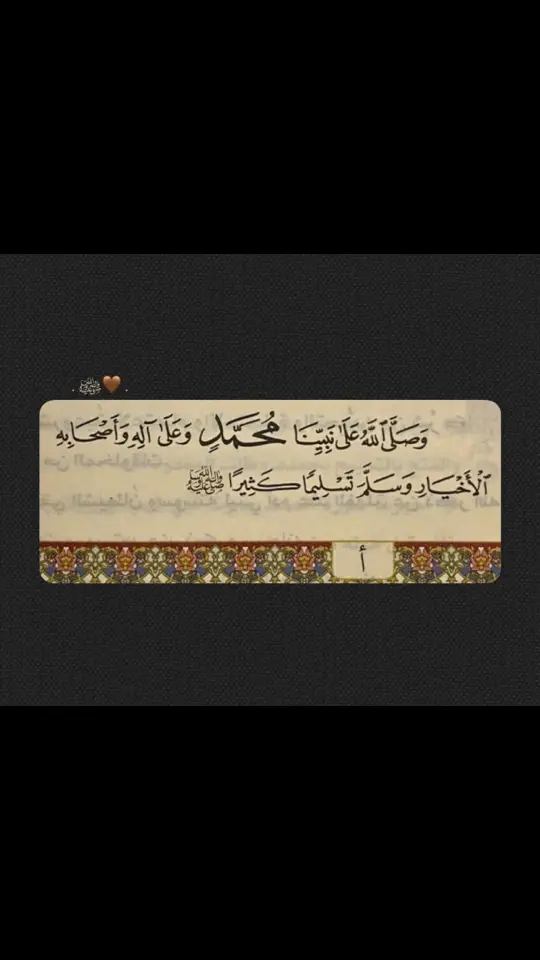 . ﷺ🤎 .
وَصَلَّى ٱللَّهُ عَلَىٰ نَبِيِّنَا مُحَمَّدٍ وَعَلَىٰ آلِهِ وَأَصْحَابِهِ
الْأَخْيَارِ وَسَلَّمَ تَسْلِيمًا كَثِيرًا ﷺ
أ